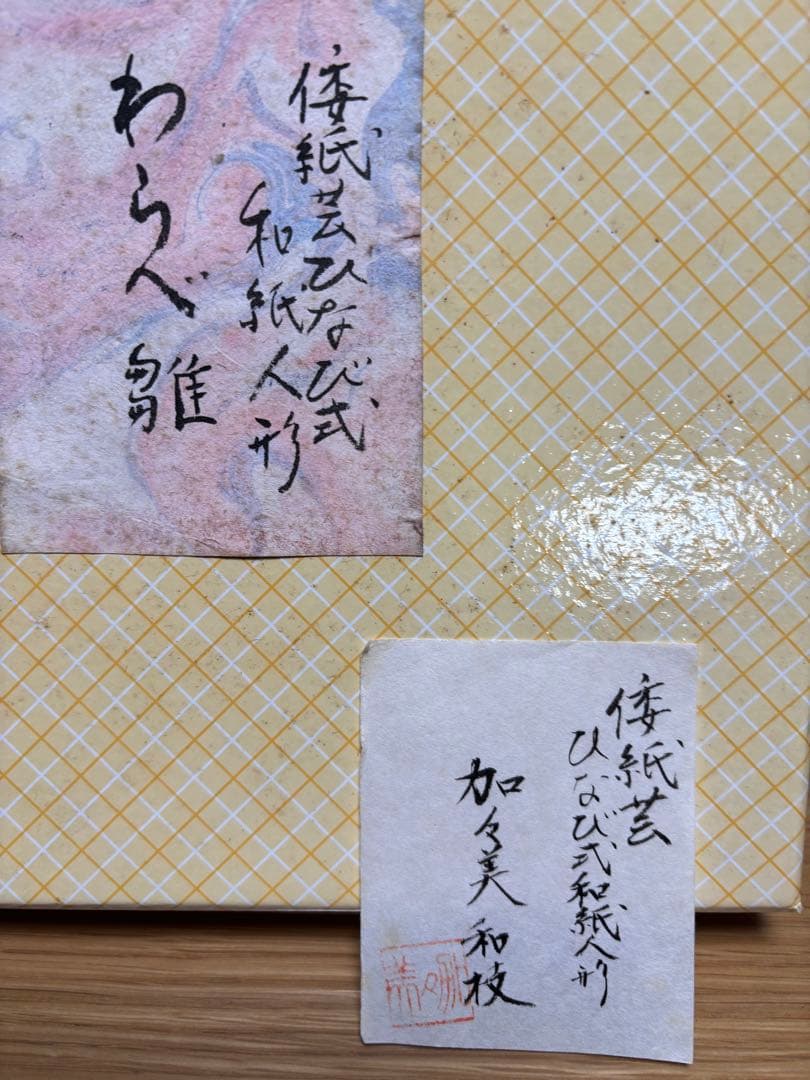 倭紙芸ひなび式
和紙人形
わらべ雛
倭紙芸
ひなび式和紙人形
加々美和枝